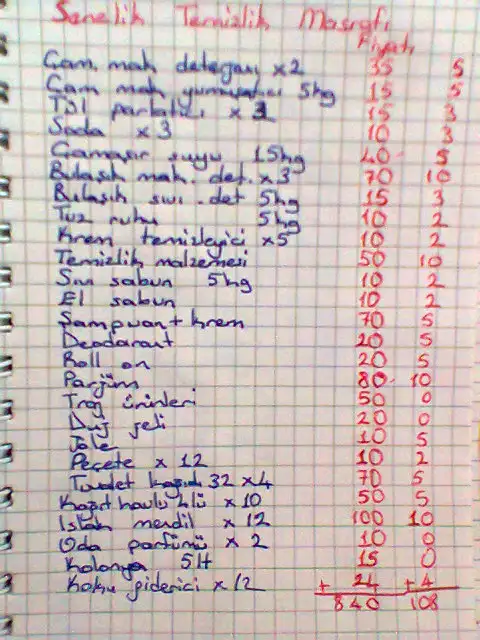 Senelik Temizlik Masrafı
Fiyatı
Çam. mak detarjanı x2 35 5
Çam mak yumuşatıcı 5kg 15 5
TSI parlatıcı x 3 15 3
Soda x 3 10 3
Çamaşır suyu 15kg 40 5
Bulaşık mak. det. x 3 70 10
Bulaşık sıvı .det 5kg 15 3
Tuz ruhu 5kg 10 2
Krem temizleyici x5 10 2
Temizlik malzemesi 50 10
Sıvı sabun 5kg 10 2
El sabun 10 2
Şampuan + krem 70 5
Deodarant 20 5
Roll on 20 5
Parfüm 80 10
Traş ürünleri 50 0
Duş jeli 20 0
Jole 10 5
Peçete x 12 10 2
Tuvalet kağıdı 32 x4 70 5
Kağıt havlu lü x 10 50 5
Islak mendil x 12 100 10
Oda parfümü x 2 10 0
Kolonya 5lt 15 0
Koku giderici x 12 + 24 + 4
840 108